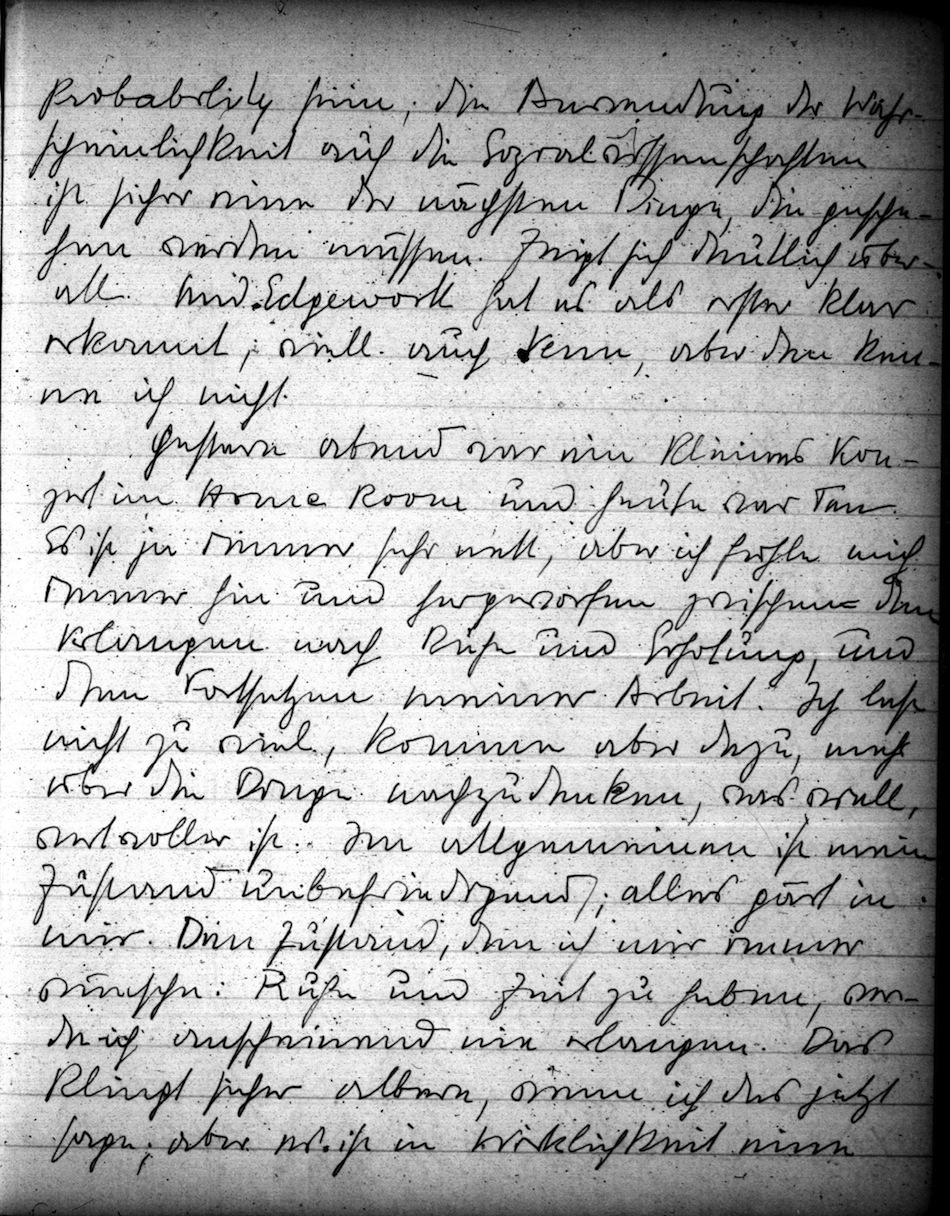 Probability sein; die Anwendung der Wahr-
scheinlichkeit auf die Sozialwissenschaften
ist sicher eine der nächsten Dinge, die gesche-
hen werden müssen. Zeigt sich deutlich über-
all. Und Edgeworth hat es als erster klar
erkannt; viell. auch Venn, aber den ken-
ne ich nicht.
Gestern abend war ein kleines Kon-
zert im Home Room und heute war Tee.
Es ist ja immer sehr nett, aber ich fühle mich
immer hin und hergeworfen zwischen dem
Verlangen nach Ruhe und Erholung, und
dem Fortsetzen meiner Arbeit. Ich lese
nicht zu viel, komme aber dazu, mehr
über die Dinge nachzudenken, was viell.
wertvoller ist. Im allgemeinen ist mein
Zustand unbefriedigend; alles gärt in
mir. Den Zustand, den ich mir immer
wünsche: Ruhe und Zeit zu haben, wer-
de ich anscheinend nie erlangen. Das
klingt sicher albern, wenn ich das jetzt
sage; aber es ist in Wirklichkeit eine